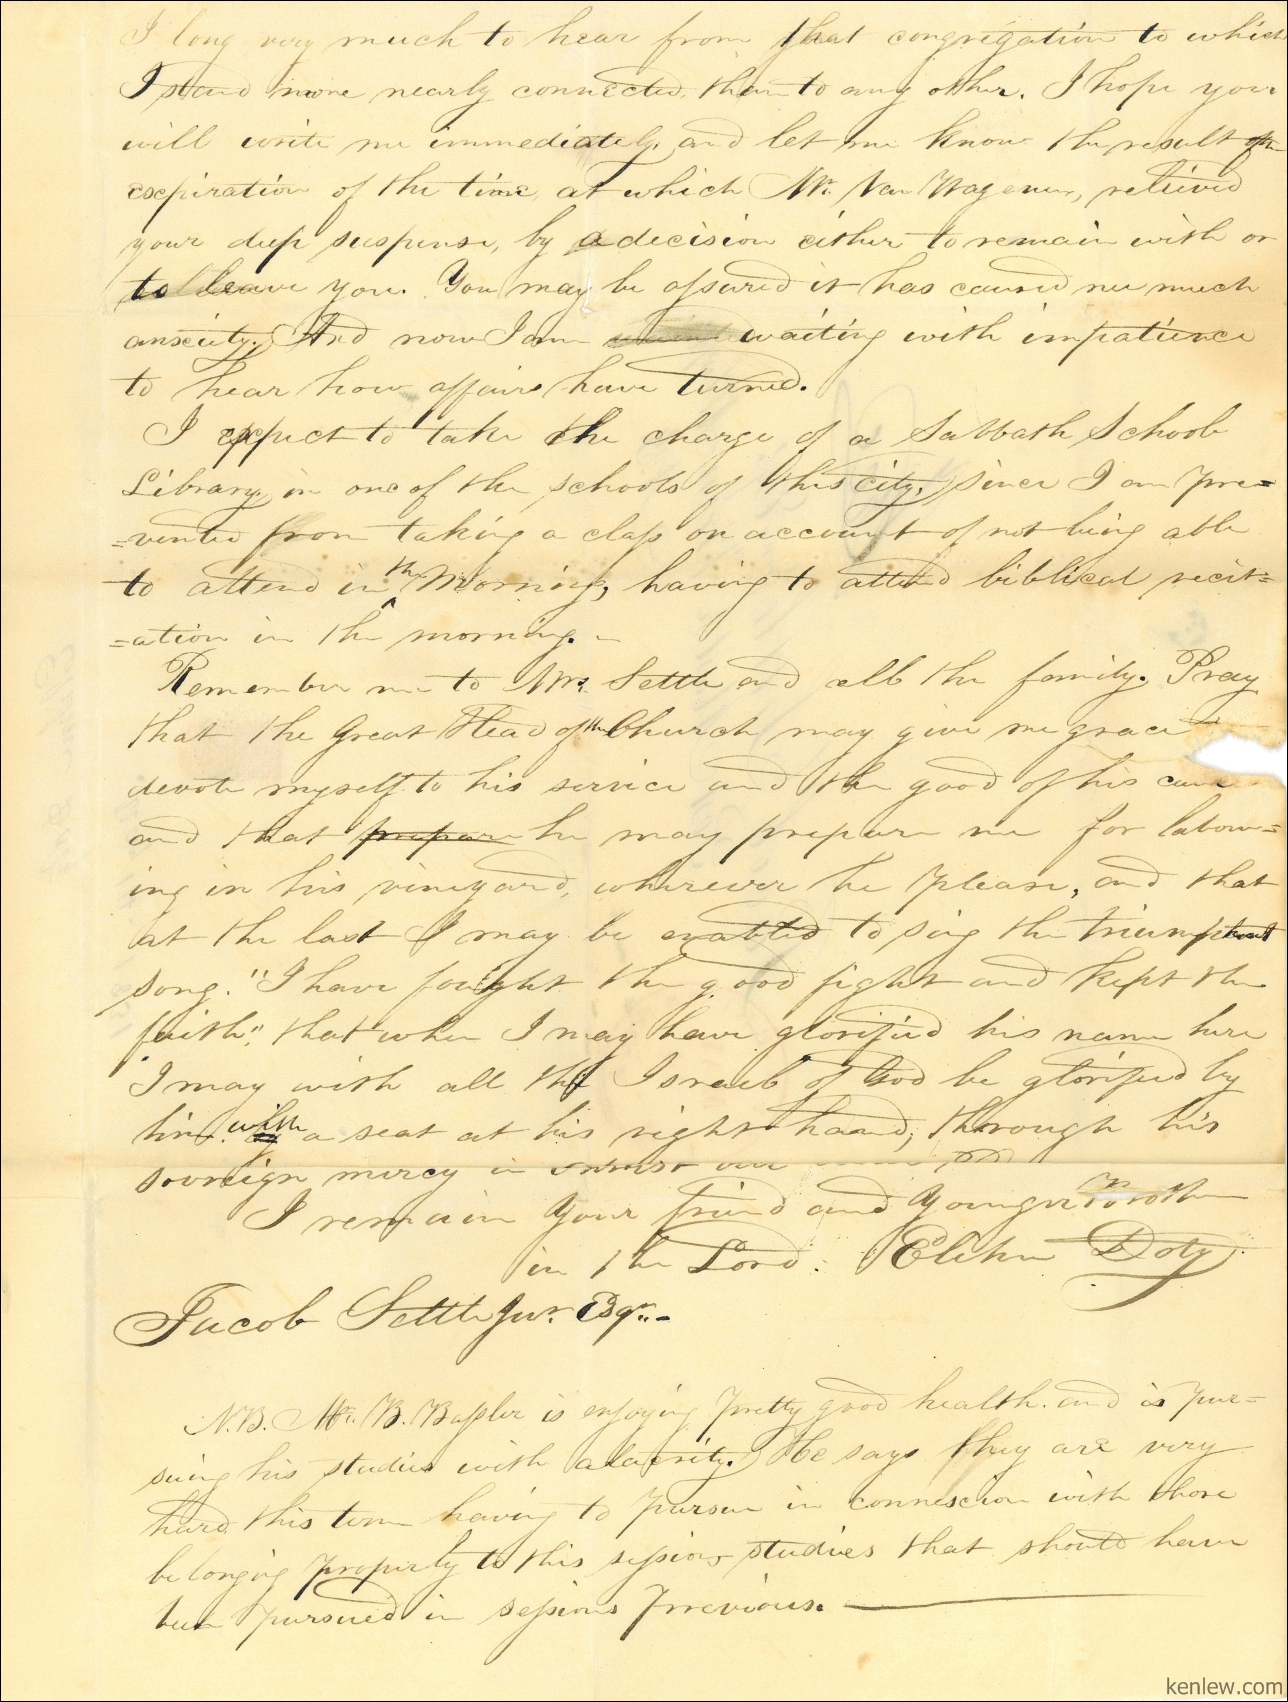 I long very much to hear from that congregation to which
I stand more nearly connected than to any other. I hope you
will write me immediately, and let me know the result of the
expiration of the time, at which Mr. Van Wagenen, relieved
your deep suspense, by a decision either to remain with or
to leave you. You may be assured it has caused me much
anxiety. And now I am waiting with impatience
to hear how affairs have turned.
I expect to take the charge of a Sabbath School
Library, in one of the schools of this city, since I am pre=
=vented from taking a class on account of not being able
to attend in the Morning, having to attend biblical recit=
=ation in the morning. –
Remember me to Mrs. Settle and all the family. Pray
that the Great Head of the Church may give me grace
devote myself to his service and the good of his cause
and that prepare he may prepare me for labour=
ing in his vineyard, wherever he please, and that
at the last I may be enabled to sing the triumphant
song. "I have fought the good fight and kept the
faith", that when I may have glorified his name here
I may with all the Israel of God be glorified by
him with a seat at his right hand, through his
sovreign mercy in
I remain your friend and younger Brother
in the Lord. Elihu Doty
Jacob Settle Junr. Esqr.-
N.B. Mr. B. Bassler is enjoying pretty good health. and is pur=
suing his studies with alacrity. He says they are very
hard this term having to pursue in connexion with those
belonging properly to this session studies that should have
been pursued in sessions previous.
kenlew.com